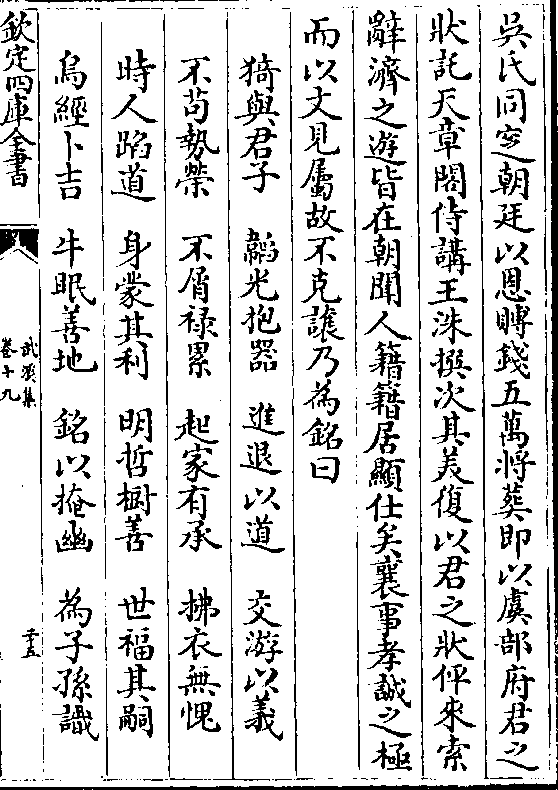 吳氏同窆朝廷以恩賻錢五萬將葬即以虞部府君之
狀託天章閣侍講王洙撰次其美復以君之狀伻來索
辭濟之遊皆在朝聞人籍籍居顯仕矣襄事孝誠之極
而以文見屬故不克讓乃為銘曰
猗與君子　韜光抱器　進退以道　交游以義
不苟勢榮　不屑祿累　起家有承　拂衣無愧
時人蹈道　身蒙其利　明哲樹善　世福其嗣
烏經卜吉　牛眠善地　銘以掩幽　為子孫識
欽定四庫全書
武溪集
卷十九
十五